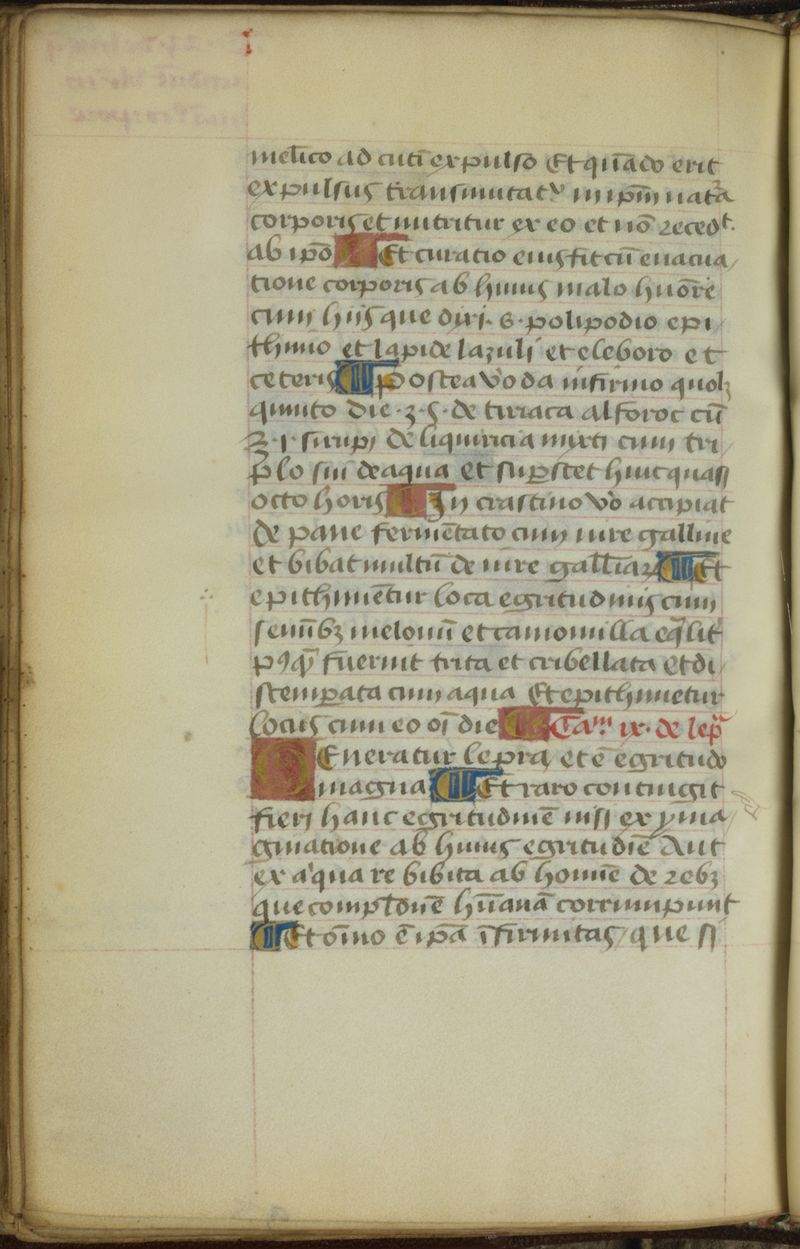 i
melīco ad cuti expulsō Et qūado erit
expulsus transmutatᵉ in ip̄m natā
corporis et nutritur ex eo et nō recedᵗ.
ab ip̄o Et curatio eius fit cū euacua
tione corporis ab huius malo huōre
cum hijs que dixi. 6. polipodio epi
thimo et lapide lazuli et eleboro et
ceteris postea v̊o da infirmo quolꝫ
quinto die .ꝫ.5. de tiriaca alforoc cū
ꝫ.i. sirupi de liquiricia mixti cum tri
plo sui de aqua et suꝑstet huic quasi
octo horis In crastino v̊o accipiat
de pane fermētato cum iure galline
et bibat multū de iure gallīaꝝ Et
epithimētur loca egritudinis cum
seminibꝫ melonū et camomilla eq̄lit̄
pꝰq̄ fuerint trita et cribellata et di
stemꝑata cum aqua Et epithimetur
locus cum eo oī die Caᵐ ix. de lep̄
Generatur lepra, et ē egritudo
magna Et raro contingit
fieri hanc egritudinē nisi ex yma
ginatione ab huius egritudīe Aut
ex aqua re bibita ab homīe de rebꝫ
que complōnē hūanā corrumpunt
Et oīno ē ip̄a īfirmitas, que si